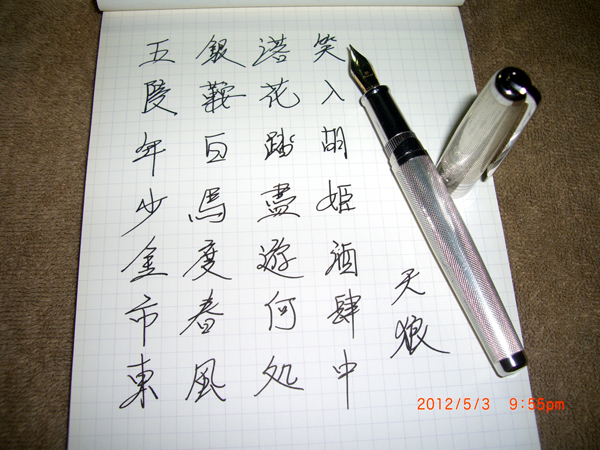 五陵年少金市東
銀鞍白馬度春風
落花踏盡遊何処
笑入胡姬酒肆中
天狼
2012/5/3 9:55pm